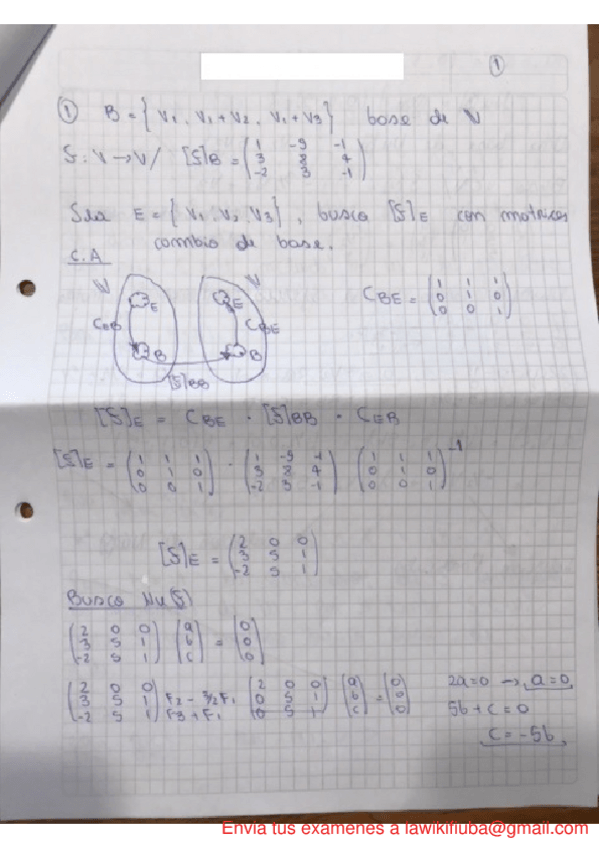 1
① B = { V1, V1+V2, V1+V3 } base de V
S: V → V / [S]B = ( 1 -9 -1
3 8 4
-2 3 -1 )
Sea E = { V1, V2, V3 }, busco [S]E con matrices
cambio de base.
C.A
V V
E E
CEB CBE
B B
[S]BB
CBE = ( 1 1 1
0 1 0
0 0 1 )
[S]E = CBE · [S]BB · CEB
[S]E = ( 1 1 1
0 1 0
0 0 1 ) · ( 1 -9 -1
3 8 4
-2 3 -1 ) ( 1 1 1
0 1 0
0 0 1 )-1
[S]E = ( 2 0 0
3 5 1
-2 5 1 )
Busco Nu(S)
( 2 0 0
3 5 1
-2 5 1 ) ( a
b
c ) = ( 0
0
0 )
( 2 0 0
3 5 1
-2 5 1 ) F2 - 3/2F1
F3 + F1 ( 2 0 0
0 5 1
0 5 1 ) ( a
b
c ) = ( 0
0
0 )
2a=0 → a=0
5b+c=0
c=-5b
Envia tus examenes a lawikifiuba@gmail.com